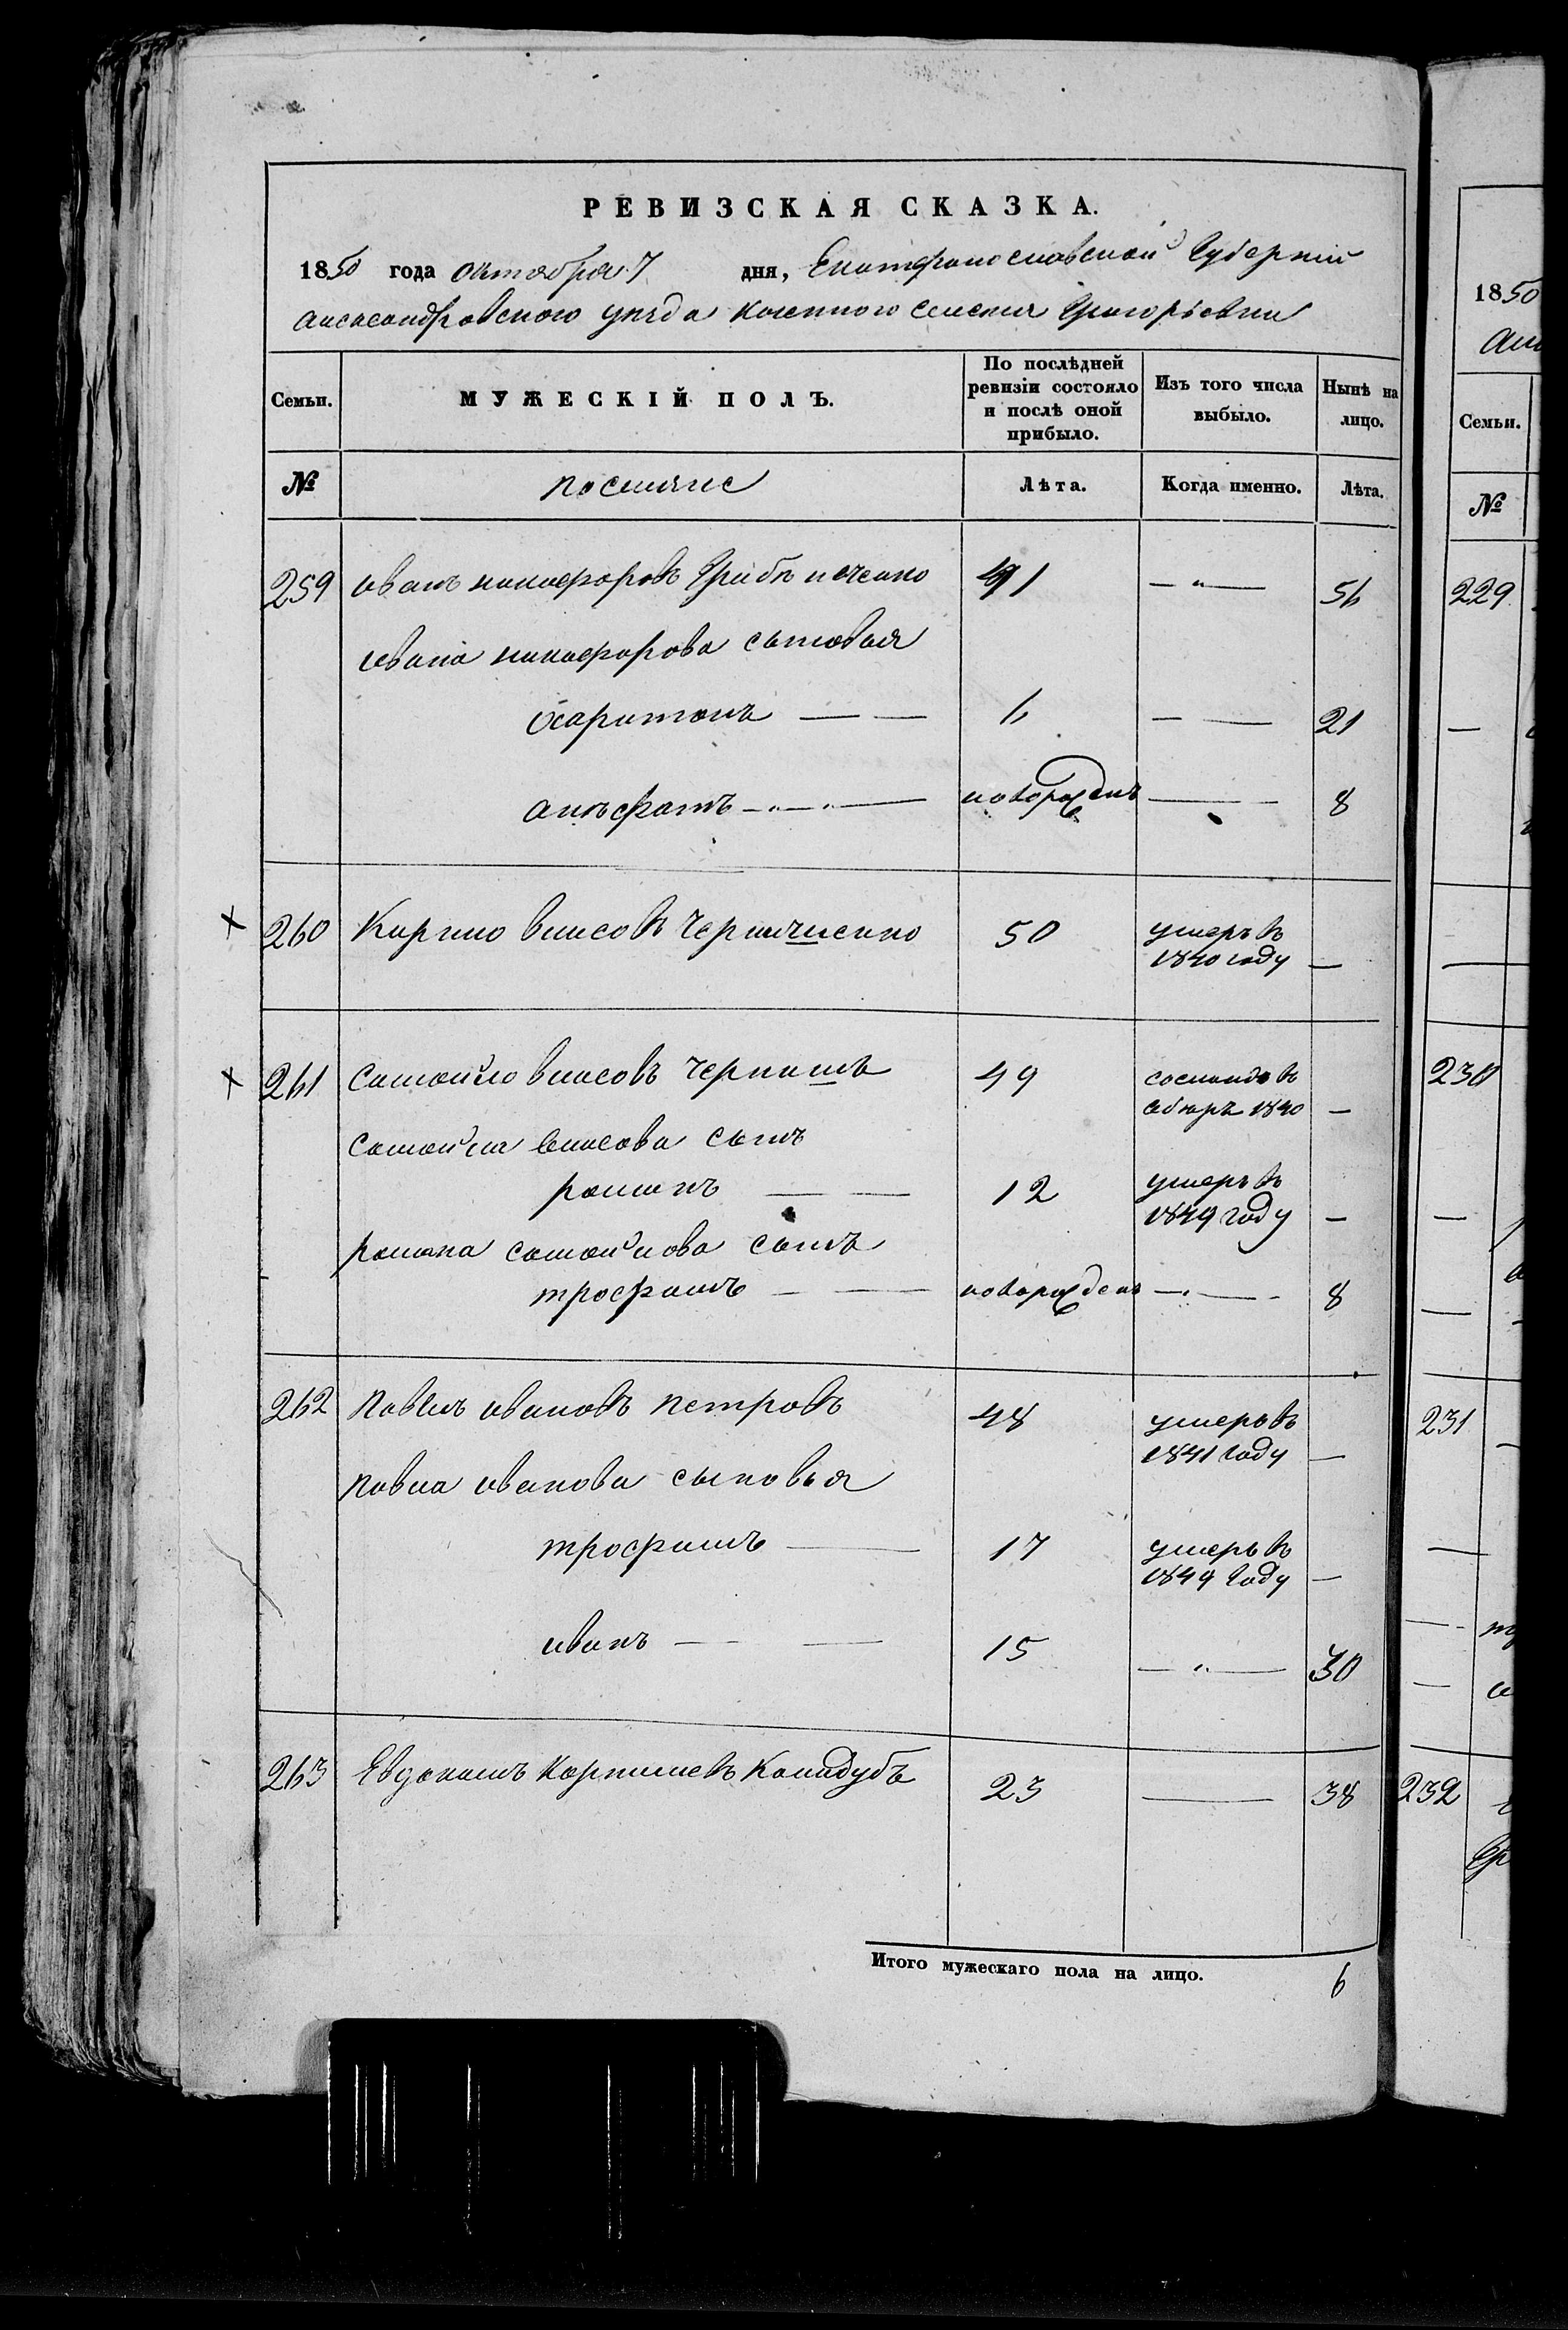 РЕВИЗСКАЯ СКАЗКА.
1850 года октября 7 дня, Екатеринославской Губернiи
александровского уезда казенного селения Григорьевки
Семьи.
МУЖЕСКІЙ ПОЛЪ.
По послѣдней ревизіи состояло и послѣ оной прибыло.
Изъ того числа выбыло.
Нынѣ на лицо.
№
поселяне
Лѣта.
Когда именно.
Лѣта.
259 иванъ никифоровъ Грибиниченко 41 — " — 56
ивана никифорова сыновья
харитонъ — — 6 — — 21
новорожденъ — 8
260 Кирило власовъ Чернишенко 50 умеръ въ
1840 году —
261 Самойло власовъ Чернишъ 49
1840 —
Самойла власова сынъ
романъ — — 12 умеръ въ
1849 году —
романа самойлова сынъ
трофимъ — — новорожденъ — " — 8
262 павелъ ивановъ петровъ 48 умеръ въ
1841 году —
павла иванова сыновья
трофимъ — 17 умеръ въ
1849 году —
иванъ — — 15 — " — 30
263 Евдокимъ Карпѣевъ Калидубъ 23 — 38
Итого мужескаго пола на лицо. 6
1850
Семьи.
№
229
—
—
230
—
—
231
—
—
—
232